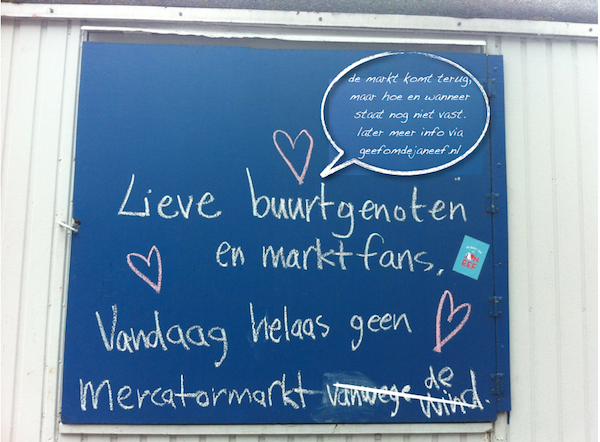 de markt komt terug,
maar hoe en wanneer
staat nog niet vast.
later meer info via
geefomdejaneef.nl
Lieve buurtgenoten
en marktfans,
Vandaag helaas geen
Mercatormarkt vanwege de wind.